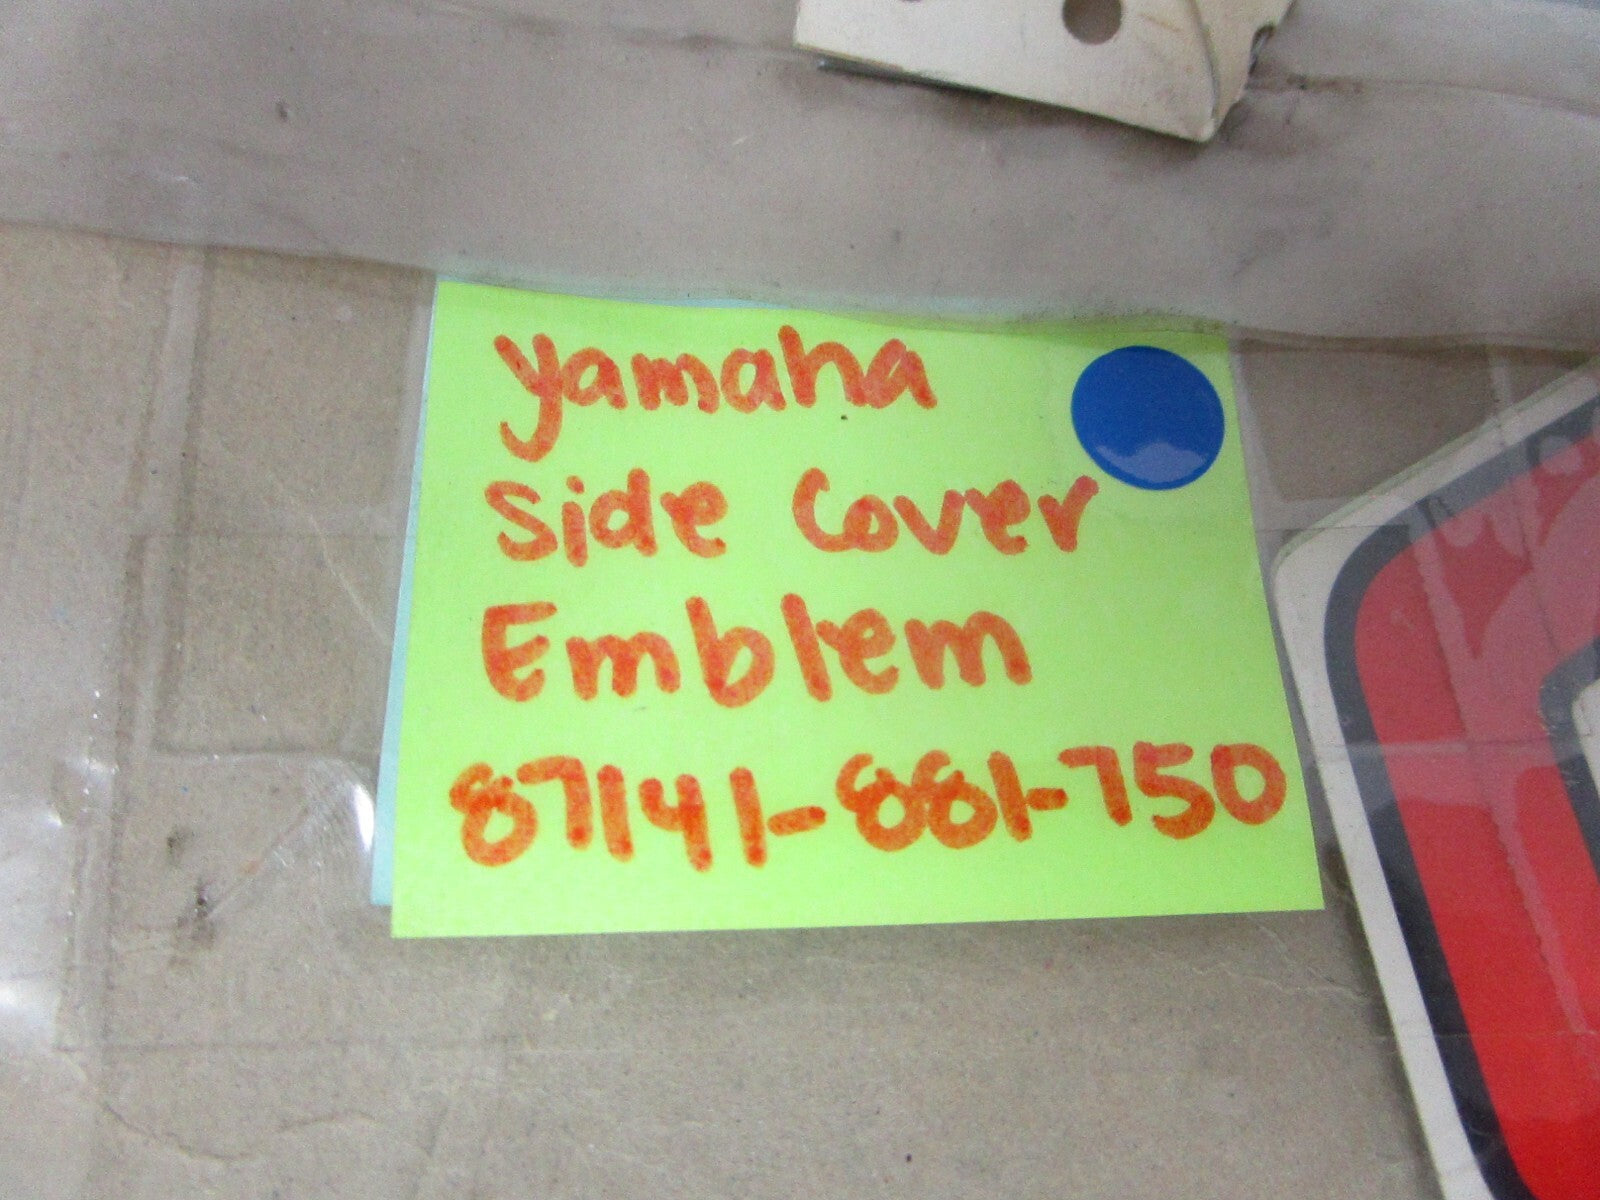 yamaha
side Cover
Emblem
87141-881-750